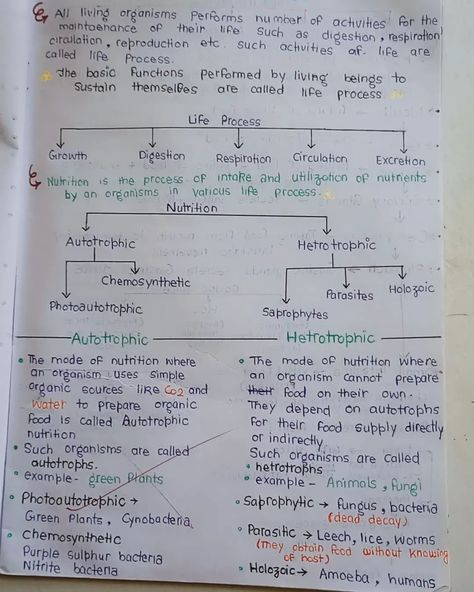 All living organisms performs number of activities for the
maintoenance of their life such as digestion, respiration
circulation, reproduction etc. such activities of life are
called life Process.
The basic functions performed by living beings to
Sustain themselfes are called life process
Life Process
Growth Digestion Respiration Circulation Excretion
Nutrition is the process of intake and utilization of nutrients
by an organisms in various life process.
Nutrition
Autotrophic Hetrotrophic
Chemosynthetic
Photoautotrophic
Saprophytes Parasites Holozoic
Autotrophic
• The mode of nutrition where
an organism uses simple
organic sources like Co2 and
water to prepare organic
food is called Autotrophic
nutrition
• Such organisms are called
autotrophs.
• example- green Plants
• Photoautotrophic →
Green Plants, Cynobacteria
• Chemosynthetic
Purple sulphur bacteria
Nitrite bacteria
Hetrotrophic
• The mode of nutrition where
an organism cannot prepare
their food on their own.
They depend on autotrophs
for their food supply directly
or indirectly.
Such organisms are called
• hetrotrophs
• example - Animals, fungi
• Saprophytic → fungus, bacteria
(dead decay)
• Parasitic → Leech, lice, worms
(They obtain food without knowing
of host)
• Holozoic → Amoeba, humans